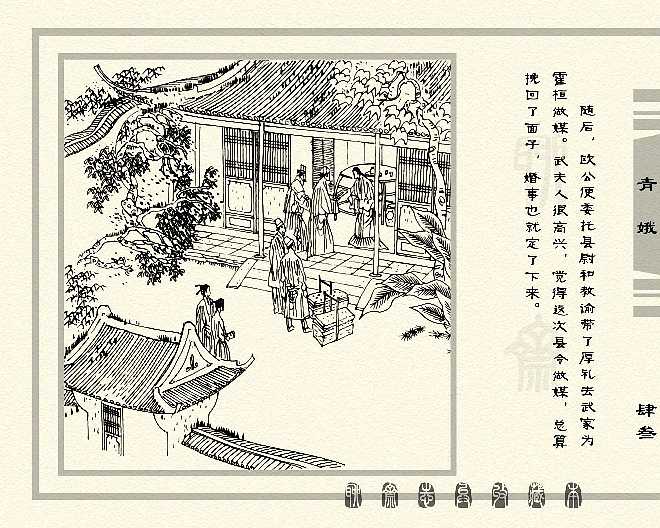 随后，欧公便委托县尉和教谕带了厚礼去武家为
霍桓做媒。武夫人很高兴，觉得这次县令做媒，总算
挽回了面子，婚事也就定了下来。
青娥
肆叁
聊斋志异收藏本